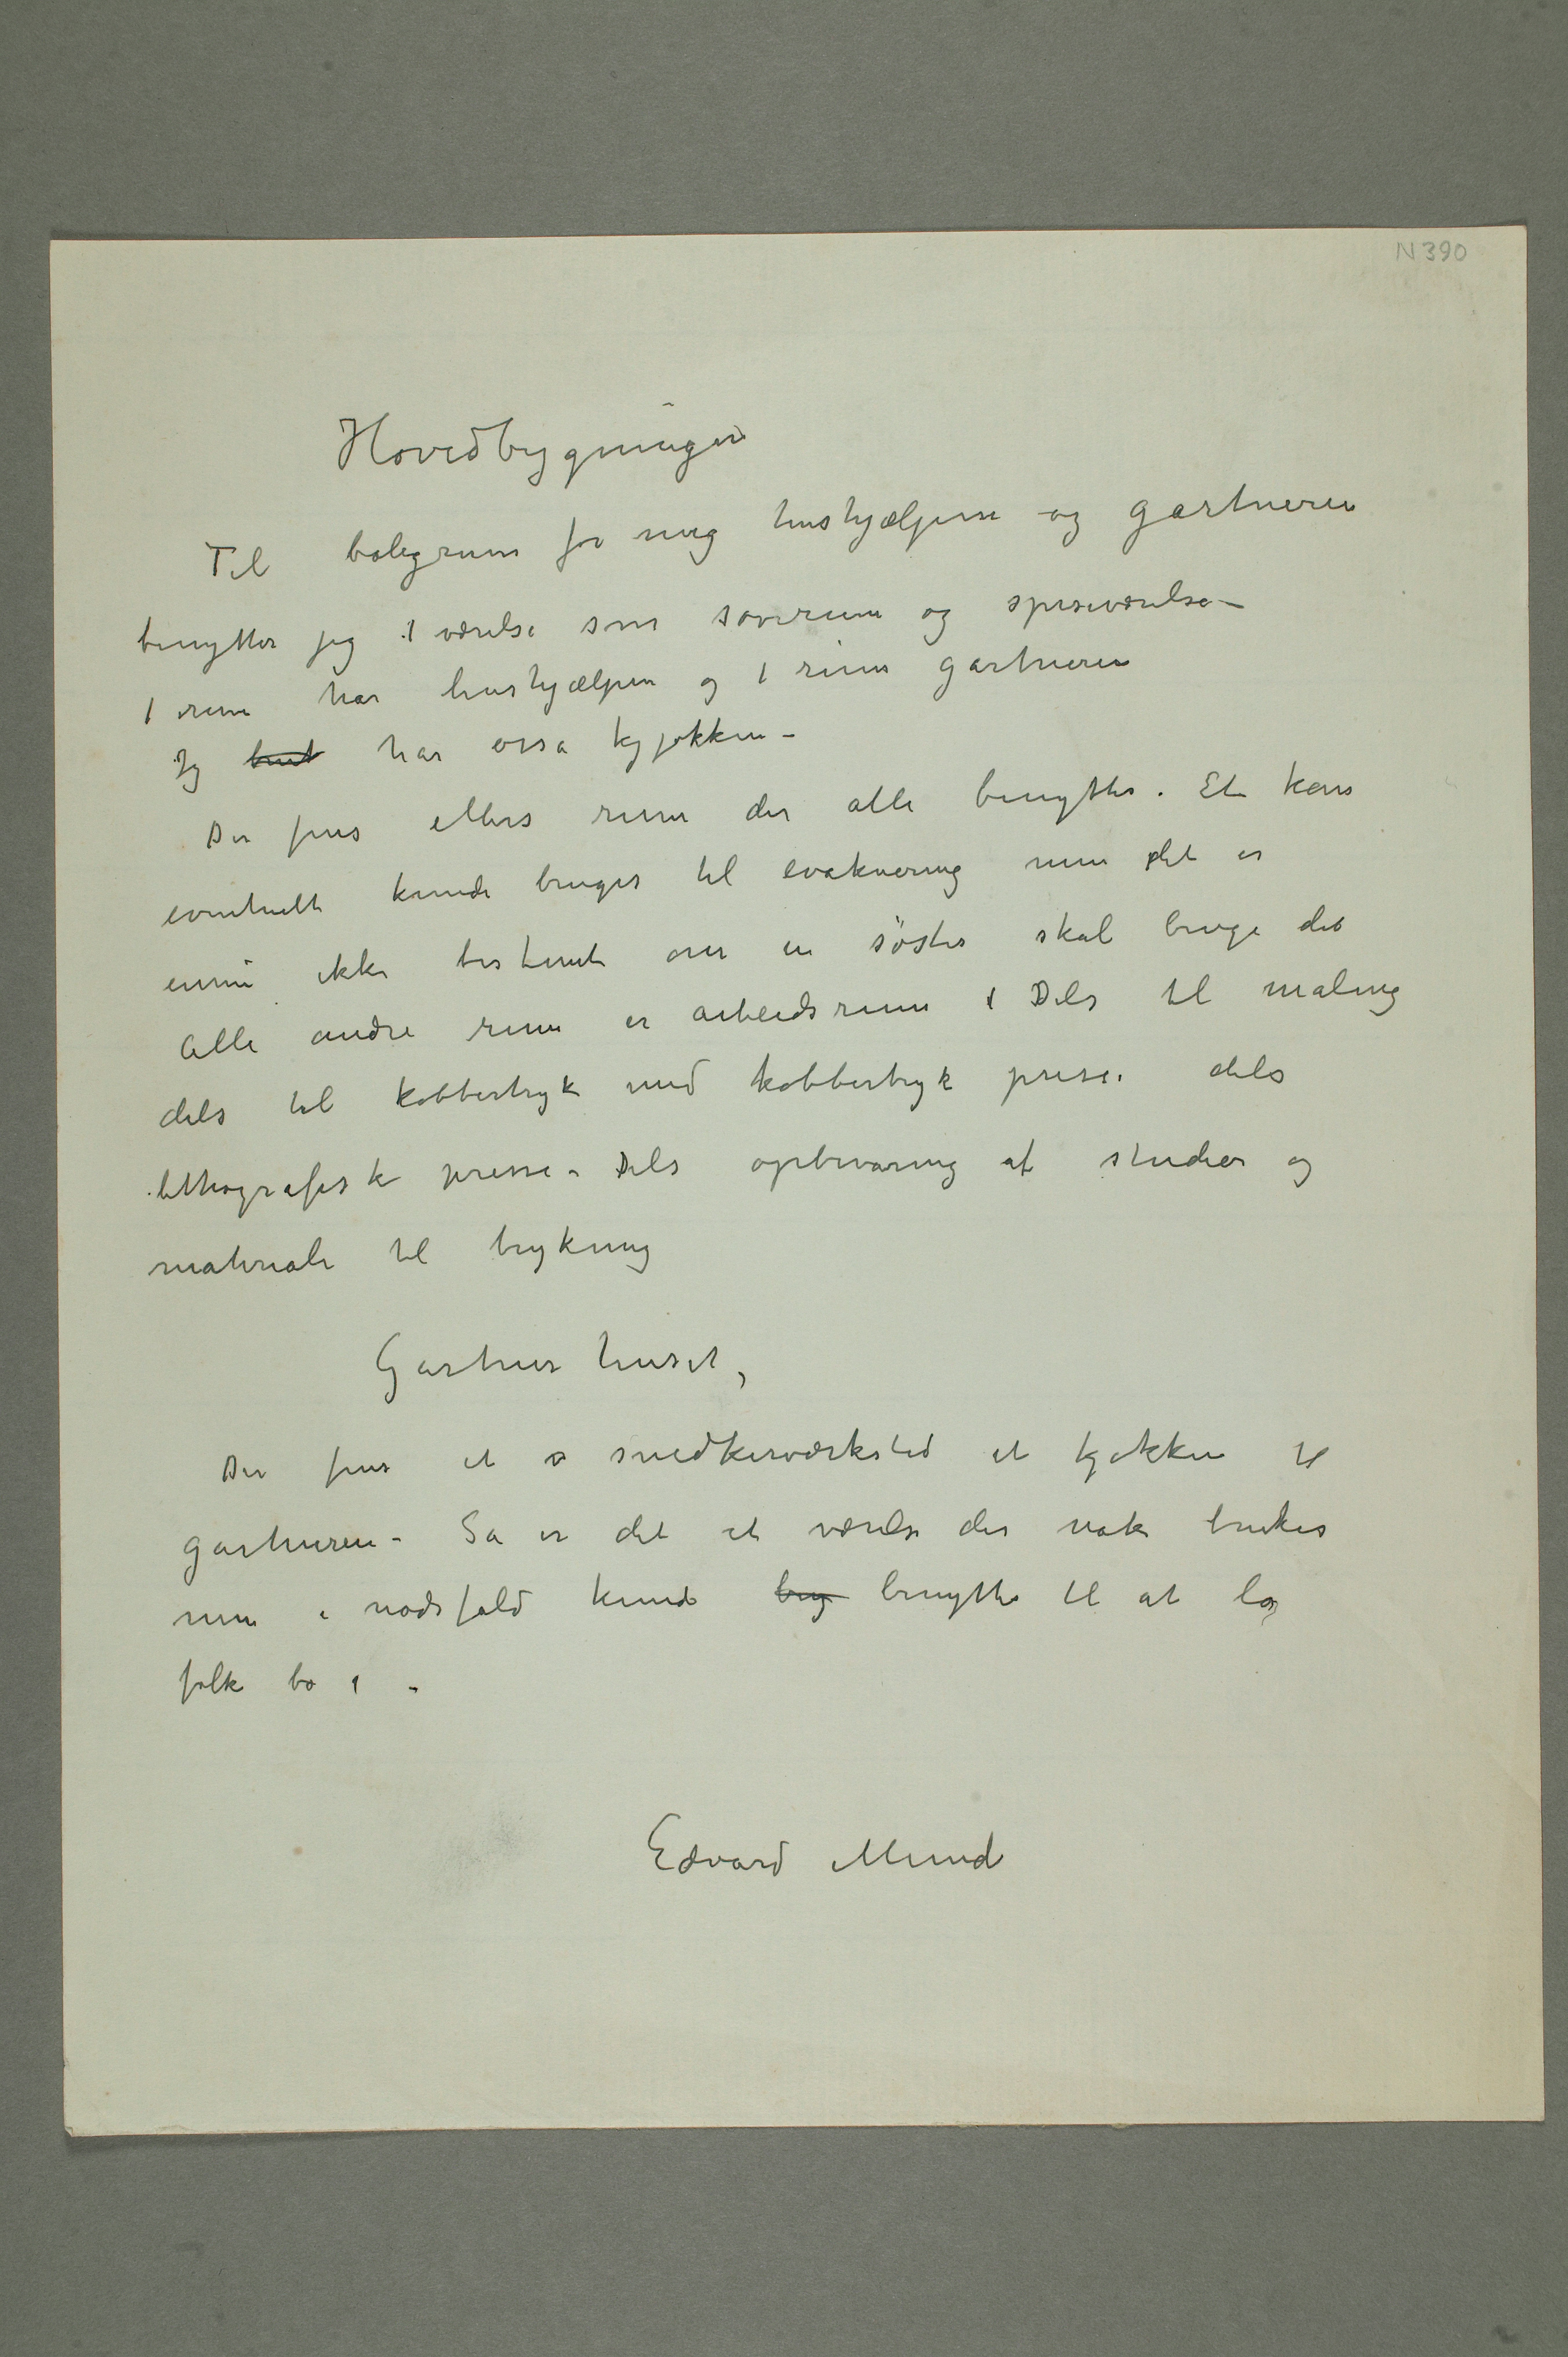 N 390
Hovedbygningen
Til boligrum for mig hushjælpen og gartneren
benytter jeg 1 værelse som soverum og spiseværelse –
1 rum har hushjælpen og 1 rum gartneren
Jg har osså kjøkken –
Der fins ellers rum der alle benyttes. Et kan
eventuelt kunde bruges til evakuering men det er
ennu ikke bestemt om en söster skal bruge det
Alle andre rum er arbeidsrum Dels til maling
dels til kobbertryk med kobbertryk prese. dels
lithografisk presse – Dels opbevaring af studier og
materiale til trykning
Gartner huset,
Der fins et snedkerværksted et kjøkken til
gartneren – Så er det et værelse der nok brukes
men i nødsfald kunde benyttes til at la
folk bo i –
Edvard Munch